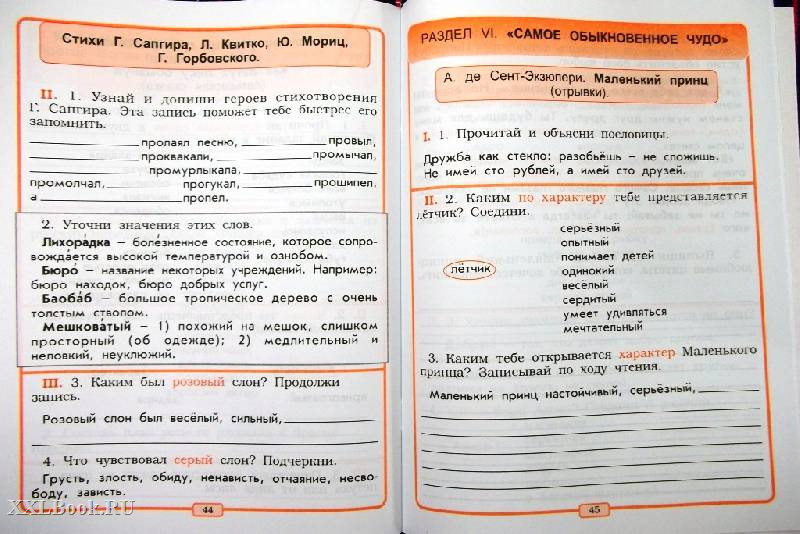 Стихи Г. Сапгира, Л. Квитко, Ю. Мориц,
Г. Горбовского.
II. 1. Узнай и допиши героев стихотворения
Г. Сапгира. Эта запись поможет тебе быстрее его
запомнить.
____________ пролаял песню, ____________ провыл,
____________ проквакали, ____________ промычал,
____________ промурлыкала. ____________
промолчал, ________ прогукал, ________ прошипел,
а ____________ пропел.
2. Уточни значения этих слов.
Лихора́дка – боле́зненное состояние, которое сопро-
вожда́ется высокой температурой и ознобом.
Бюро́ – название некоторых учреждений. Например:
бюро находок, бюро добрых услуг.
Баоба́б – большое тропическое дерево с очень
толстым стволом.
Мешкова́тый – 1) похожий на мешок, слишком
просторный (об одежде); 2) медлительный и
неловкий, неуклюжий.
III. 3. Каким был розовый слон? Продолжи
запись.
Розовый слон был весёлый, сильный, ____________
4. Что чувствовал серый слон? Подчеркни.
Грусть, злость, обиду, ненависть, отчаяние, несво-
боду, зависть.
44
XXLBook.RU
РАЗДЕЛ VI. «САМОЕ ОБЫКНОВЕННОЕ ЧУДО»
А. де Сент-Экзюпери. Маленький принц
(отрывки).
I. 1. Прочитай и объясни пословицы.
Дружба как стекло: разобьёшь – не сложишь.
Не имей сто рублей, а имей сто друзей.
II. 2. Каким по характеру тебе представляется
лётчик? Соедини.
серьёзный
опытный
понимает детей
лётчик одинокий
весёлый
сердитый
умеет удивляться
мечтательный
3. Каким тебе открывается характер Маленького
принца? Записывай по ходу чтения.
Маленький принц настойчивый, серьёзный, ____________
45